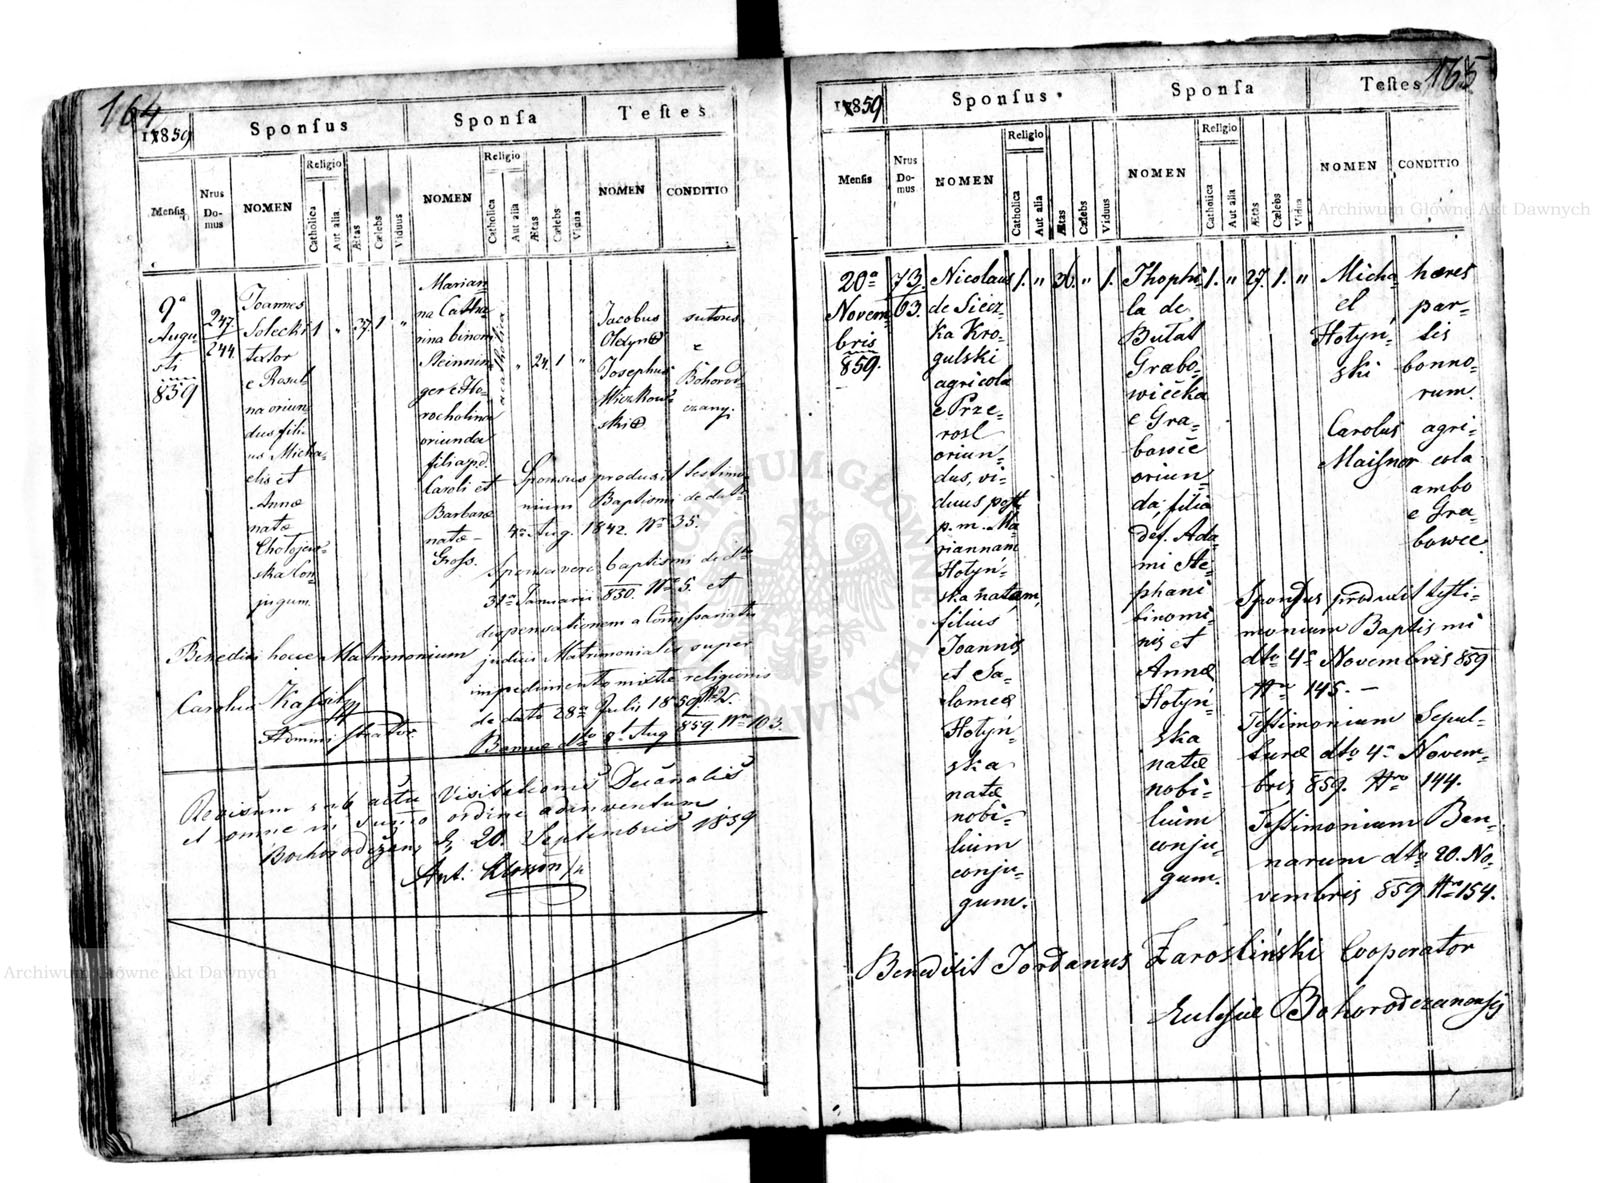 164
1859
Sponſus
Sponſa
Teſtes
Menſis
Nrus Domus
NOMEN
Religio
Catholica
Aut alia
Ætas
Cælebs
Viduus
NOMEN
Religio
Catholica
Aut alia
Ætas
Cælebs
Vidua
NOMEN
CONDITIO
9a
Augu
sti
859
247
244
Joannes
Solecki
textor
e Rosul
na oriun
dus fili
us Micha
elis et
Annæ
natæ
ska Con
jugum
1
"
37
1
"
Marian
na Catha
rina binom
Steinnin
ger e Ho
rocholina
oriunda
filia pd.
Caroli et
Barbaræ
natæ
Groß.
acatholica
"
24
1
"
Jacobus
Josephus
sutores
e
Bohorod
czany.
Sponsus produxit testimo
nium Baptismi de dato
4a Aug. 1842. No 35.
Sponsa vero baptismi de dto
31a Januarii 830. No 5. et
dispensationem a Comissariatu
judicii Matrimonialis super
impedimento mixtæ religionis
de dato 28a Julii 1859 No 2.
Bannæ dto 8a Aug 859. No 103.
Benedixi hocce Matrimonium
Carolus
Administrator
Revisum sub actu Visitationis Decanalis
et omne in suo ordine adinventum
20. Septembris 1859
Ant.
165
1859
Sponſus
Sponſa
Teſtes
Menſis
Nrus Domus
NOMEN
Religio
Catholica
Aut alia
Ætas
Cælebs
Viduus
NOMEN
Religio
Catholica
Aut alia
Ætas
Cælebs
Vidua
NOMEN
CONDITIO
20a
Novem
bris
859.
73.
63.
Nicolaus
de Siecz
ka Kro=
gulski
agricola
e Prze=
rosl
oriun=
dus, vi=
duus post
p. m. Ma
riannam
Hotyn=
ska natam,
filius
Joannis
et Sa=
lomeæ
Hotyń=
ska
natæ
nobi=
lium
conju=
gum.
1.
"
36.
"
1.
Thophi
la de
Butat
Grabo=
wiecka
e Gra=
bowce
oriun=
da, filia
def. Ada=
mi Ste=
phani
binomi=
nis et
Annæ
Hotyń=
ska
natæ
nobi=
lium
conju=
gum.
1.
"
27.
1.
"
Micha=
el
Hotyń=
ski
hæres
par=
tis
bonno=
rum.
Carolus
Maisner
agri=
cola
ambo
e Gra=
bowce
Sponsus produxit testi=
monium Baptismi
dto 4a Novembris 859
Nro 145. —
Testimonium Sepul=
turæ dto 4a Novem=
bris 859. Nro 144.
Testimonium Ban=
narum dto 20. No=
vembris 859 Nro 154.
Benedixit Jordanus Zarosliński Cooperator
Eclesiæ Bohorodczanensis
Archiwum Główne Akt Dawnych
Archiwum Główne Akt Dawnych
ARCHIWUM GŁÓWNE AKT DAWNYCH